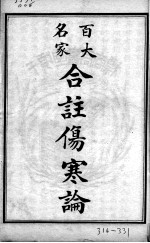 百大
名家
合註傷寒論
316-331